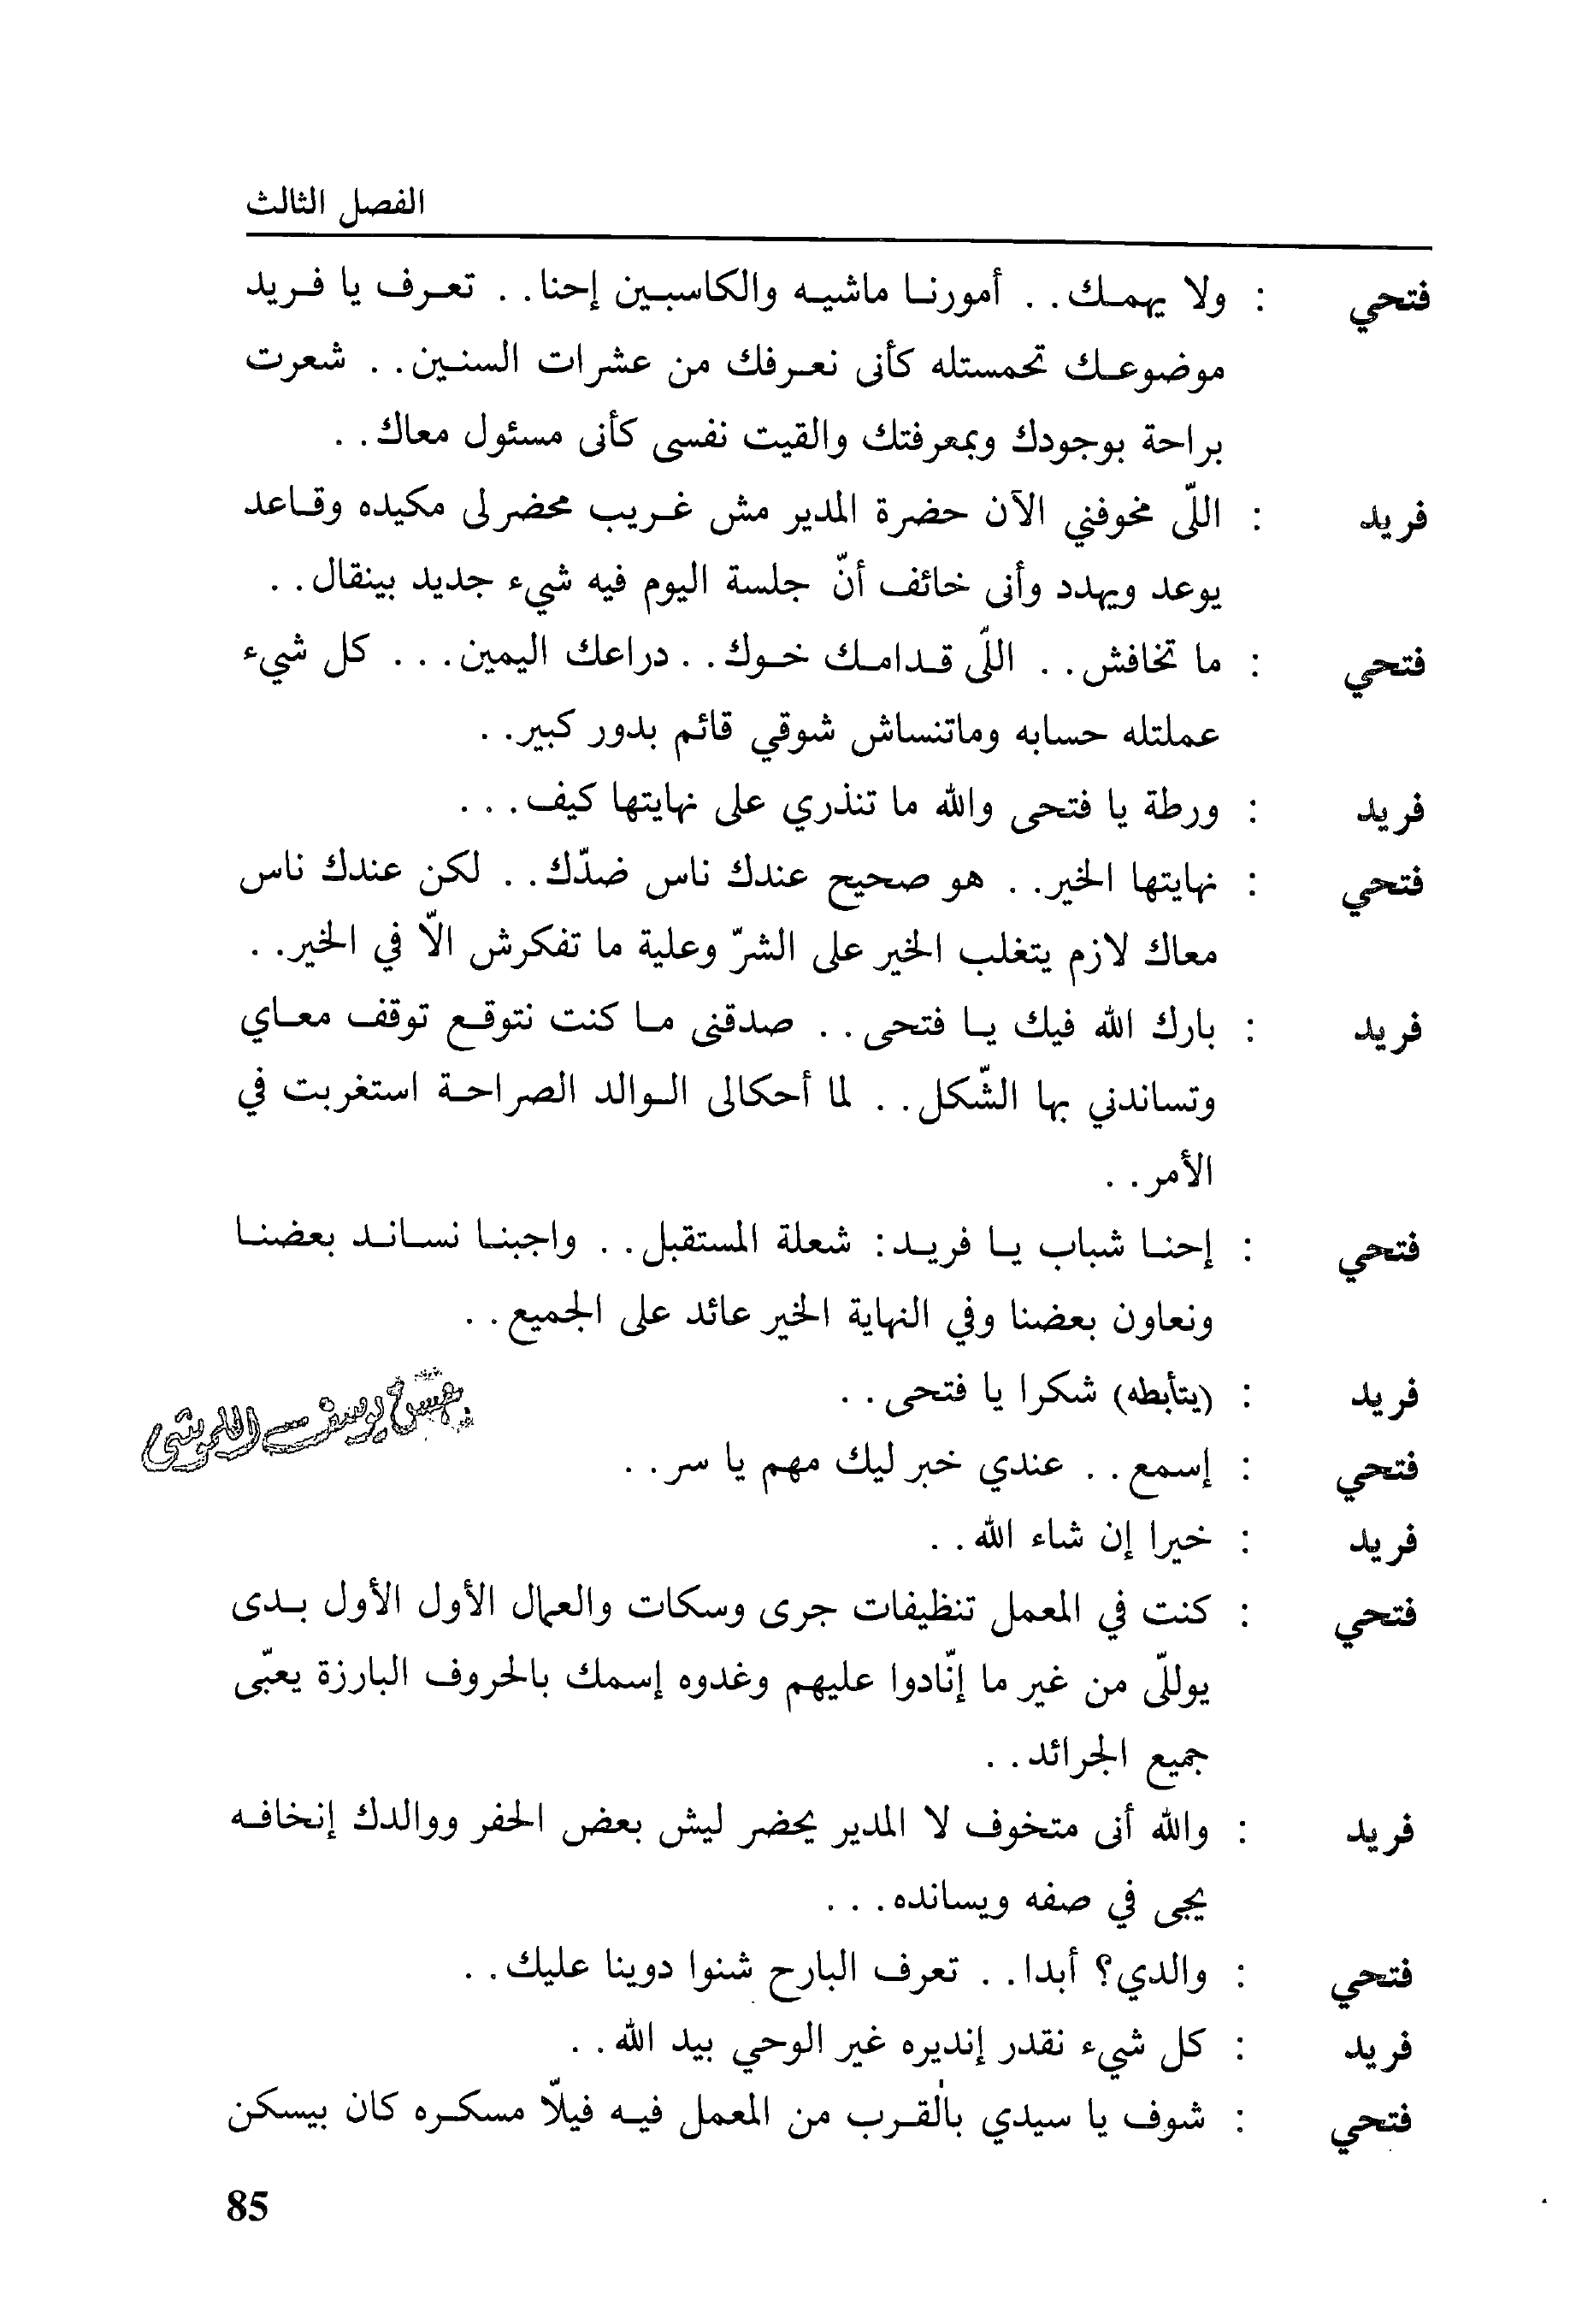 الفصل الثالث
فتحي : ولا يهمك . . أمورنا ماشيه والكاسبين إحنا . . تعرف يا فريد
موضوعك تحمستله كأنى نعرفك من عشرات السنين . . شعرت
براحة بوجودك وبمعرفتك والقيت نفسى كأنى مسئول معاك . .
فريد : اللّى مخوفني الآن حضرة المدير مش غريب محضرلى مكيده وقاعد
يوعد ويهدد وأنى خائف أنّ جلسة اليوم فيه شيء جديد بينقال . .
فتحي : ما تخافش . . اللّى قدامك خوك . . دراعك اليمين . . . كل شيء
عملتله حسابه وماتنساش شوقي قائم بدور كبير . .
فريد : ورطة يا فتحى والله ما تنذري على نهايتها كيف . . .
فتحي : نهايتها الخير . . هو صحيح عندك ناس ضدّك . . لكن عندك ناس
معاك لازم يتغلب الخير على الشرّ وعلية ما تفكرش الاّ في الخير . .
فريد : بارك الله فيك يا فتحى . . صدقنى ما كنت نتوقع توقف معاي
وتساندني بها الشّكل . . لما أحكالى الوالد الصراحة استغربت في
الأمر . .
فتحي : إحنا شباب يا فريد : شعلة المستقبل . . واجبنا نساند بعضنا
ونعاون بعضنا وفي النهاية الخير عائد على الجميع . .
فريد : (يتأبطه) شكرا يا فتحى . .
فتحي : إسمع . . عندي خبر ليك مهم يا سر . .
فريد : خيرا إن شاء الله . .
فتحي : كنت في المعمل تنظيفات جرى وسكات والعمال الأول الأول بدى
يوللّى من غير ما إنّادوا عليهم وغدوه إسمك بالحروف البارزة يعبّى
جميع الجرائد . .
فريد : والله أنى متخوف لا المدير يحضر ليش بعض الحفر ووالدك إنخافه
يجى في صفه ويسانده . . .
فتحي : والدي؟ أبدا . . تعرف البارح شنوا دوينا عليك . .
فريد : كل شيء نقدر إنديره غير الوحي بيد الله . .
فتحي : شوف يا سيدي بالقرب من المعمل فيه فيلاّ مسكره كان بيسكن
85